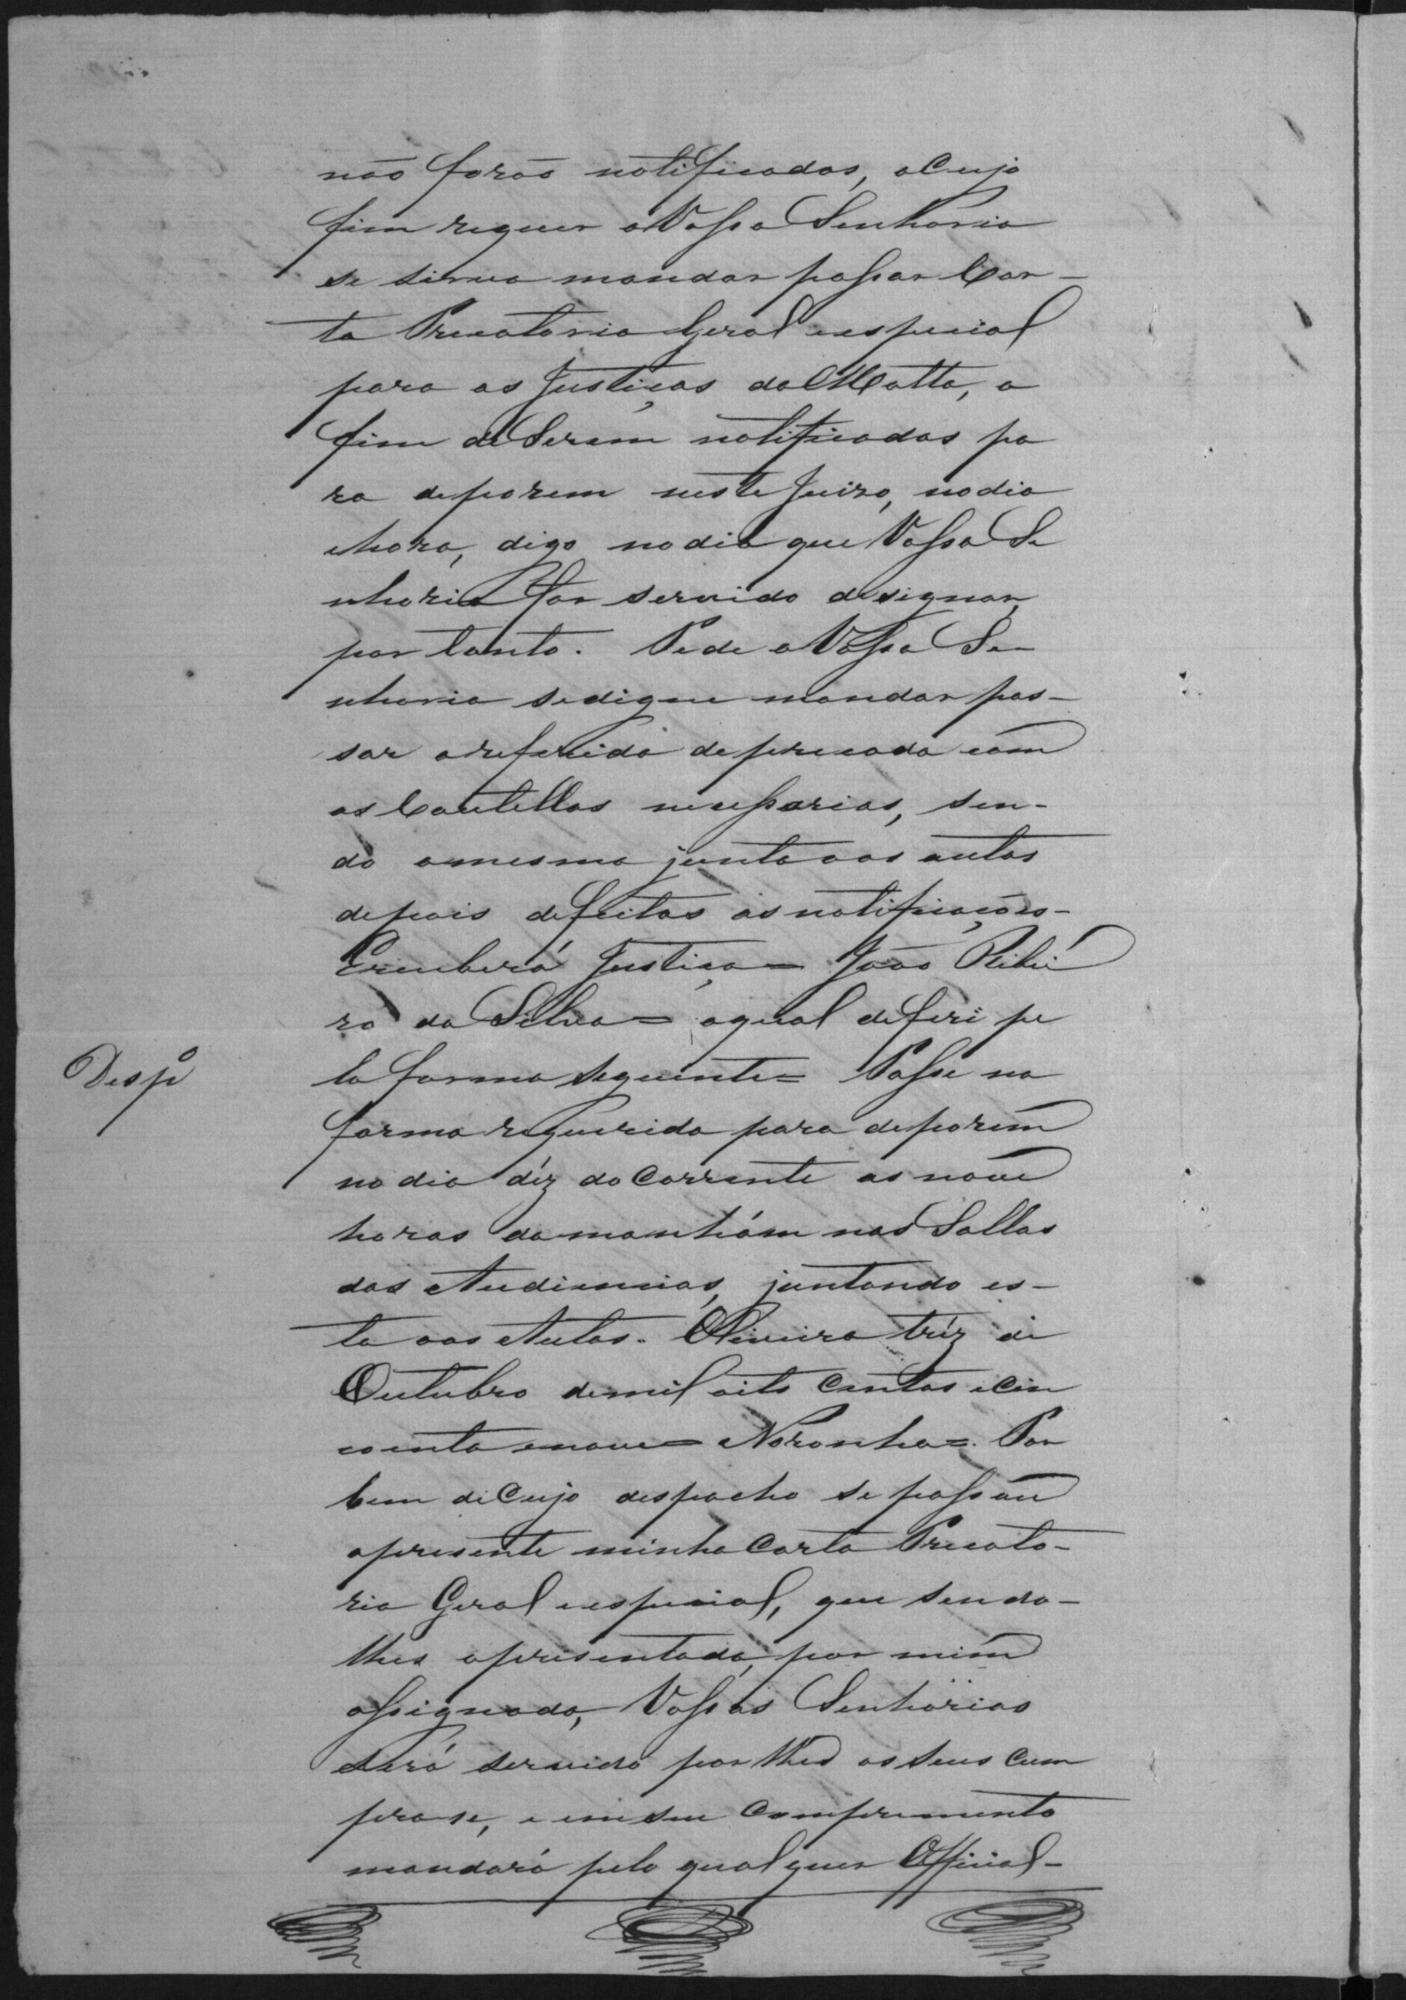 não forão notificados, a cujo
fim requer a Vossa Senhoria
se sirva mandar passar Car-
ta Precatoria Geral e especial
para as Justiças da Matta, a
fim de Serem notificadas pa
ra deporem neste Juizo, no dia
e hora, digo no dia que Vossa Se
nhoria for servido designar,
por tanto. Pede a Vossa Se-
nhoria se digne mandar pas-
sar a referida deprecada com
as Cautellas necessarias, sen-
do a mesma junta aos autos
depois de feitas as notificações-
E receberá Justiça = João Ribei
ro da Silva = a qual deferi pe
la forma seguinte = Passe na
Despº
forma requerida para deporem
no dia déz do Corrente as nove
horas da manhám nas Sallas
das Audiencias, juntando es-
ta aos Autos. Oliveira tréz de
Outubro de mil oito Centos e Cin
coenta e nove = Noronha =. Por
bem de Cujo despacho se passou
apresente minha Carta Precato-
ria Geral e especial, que sendo-
lhes apresentada, por mim
assignada, Vossas Senhorias
será servido por lhes os seus Cum
pra-se, e em seu Comprimento
mandará pelo qualquer Official-